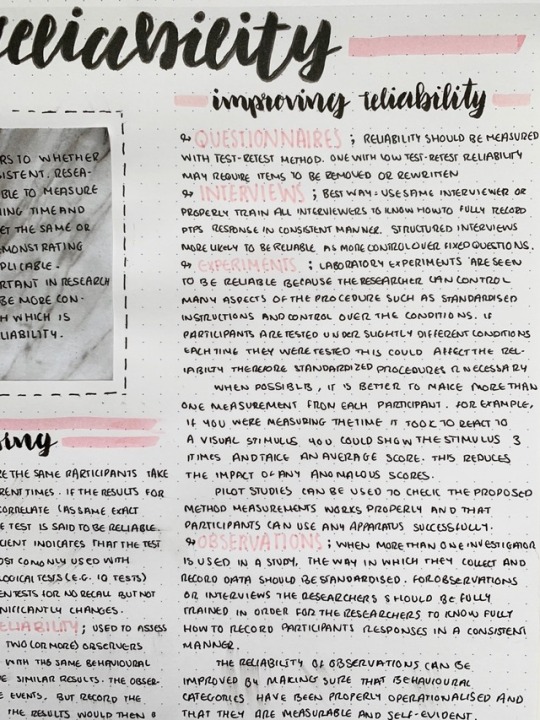 reliability
RS TO WHETHER
SISTENT. RESEA-
BLE TO MEASURE
ING TIME AND
ET THE SAME OR
MONSTRATING
PLICABLE.
RTANT IN RESEARCH
BE MORE CON-
H WHICH IS
LIABILITY.
sing
RE THE SAME PARTICIPANTS TAKE
RENT TIMES. IF THE RESULTS FOR
CORRELATE (AS SAME EXACT
E TEST IS SAID TO BE RELIABLE.
CIENT INDICATES THAT THE TEST
OST COMONLY USED WITH
LOGICAL TESTS (E.G. IQ TESTS)
EN TESTS FOR NO RECALL BUT NOT
NIFICANTLY CHANGES.
ELIABILITY; USED TO ASSESS
TWO (OR MORE) OBSERVERS
WITH THE SAME BEHAVIOURAL
E SIMILAR RESULTS. THE OBSER-
E EVENTS, BUT RECORD THE
THE RESULTS WOULD THEN
improving reliability
QUESTIONNAIRES; RELIABILITY SHOULD BE MEASURED
WITH TEST-RETEST METHOD. ONE WITH LOW TEST-RETEST RELIABILITY
MAY REQUIRE ITEMS TO BE REMOVED OR REWRITTEN
INTERVIEWS; BEST WAY = USE SAME INTERVIEWER OR
PROPERLY TRAIN ALL INTERVIEWERS TO KNOW HOW TO FULLY RECORD
PTPS RESPONSE IN CONSISTENT MANNER. STRUCTURED INTERVIEWS
MORE LIKELY TO BE RELIABLE AS MORE CONTROL OVER FIXED QUESTIONS.
EXPERIMENTS; LABORATORY EXPERIMENTS ARE SEEN
TO BE RELIABLE BECAUSE THE RESEARCHER CAN CONTROL
MANY ASPECTS OF THE PROCEDURE SUCH AS STANDARDISED
INSTRUCTIONS AND CONTROL OVER THE CONDITIONS. IF
PARTICIPANTS ARE TESTED UNDER SLIGHTLY DIFFERENT CONDITIONS
EACH TIME THEY WERE TESTED THIS COULD AFFECT THE REL-
IABILITY THEREFORE STANDARDIZED PROCEDURES R NECESSARY
WHEN POSSIBLE, IT IS BETTER TO MAKE MORE THAN
ONE MEASUREMENT FROM EACH PARTICIPANT. FOR EXAMPLE,
IF YOU WERE MEASURING THE TIME IT TOOK TO REACT TO
A VISUAL STIMULUS YOU COULD SHOW THE STIMULUS 3
TIMES AND TAKE AN AVERAGE SCORE. THIS REDUCES
THE IMPACT OF ANY ANOMALOUS SCORES.
PILOT STUDIES CAN BE USED TO CHECK THE PROPOSED
METHOD MEASUREMENTS WORKS PROPERLY AND THAT
PARTICIPANTS CAN USE ANY APPARATUS SUCCESSFULLY.
OBSERVATIONS; WHEN MORE THAN ONE INVESTIGATOR
IS USED IN A STUDY, THE WAY IN WHICH THEY COLLECT AND
RECORD DATA SHOULD BE STANDARDISED. FOR OBSERVATIONS
OR INTERVIEWS THE RESEARCHERS SHOULD BE FULLY
TRAINED IN ORDER FOR THE RESEARCHERS TO KNOW FULLY
HOW TO RECORD PARTICIPANTS RESPONSES IN A CONSISTENT
MANNER.
THE RELIABILITY OF OBSERVATIONS CAN BE
IMPROVED BY MAKING SURE THAT BEHAVIOURAL
CATEGORIES HAVE BEEN PROPERLY OPERATIONALISED AND
THAT THEY ARE MEASURABLE AND SELF-EVIDENT.